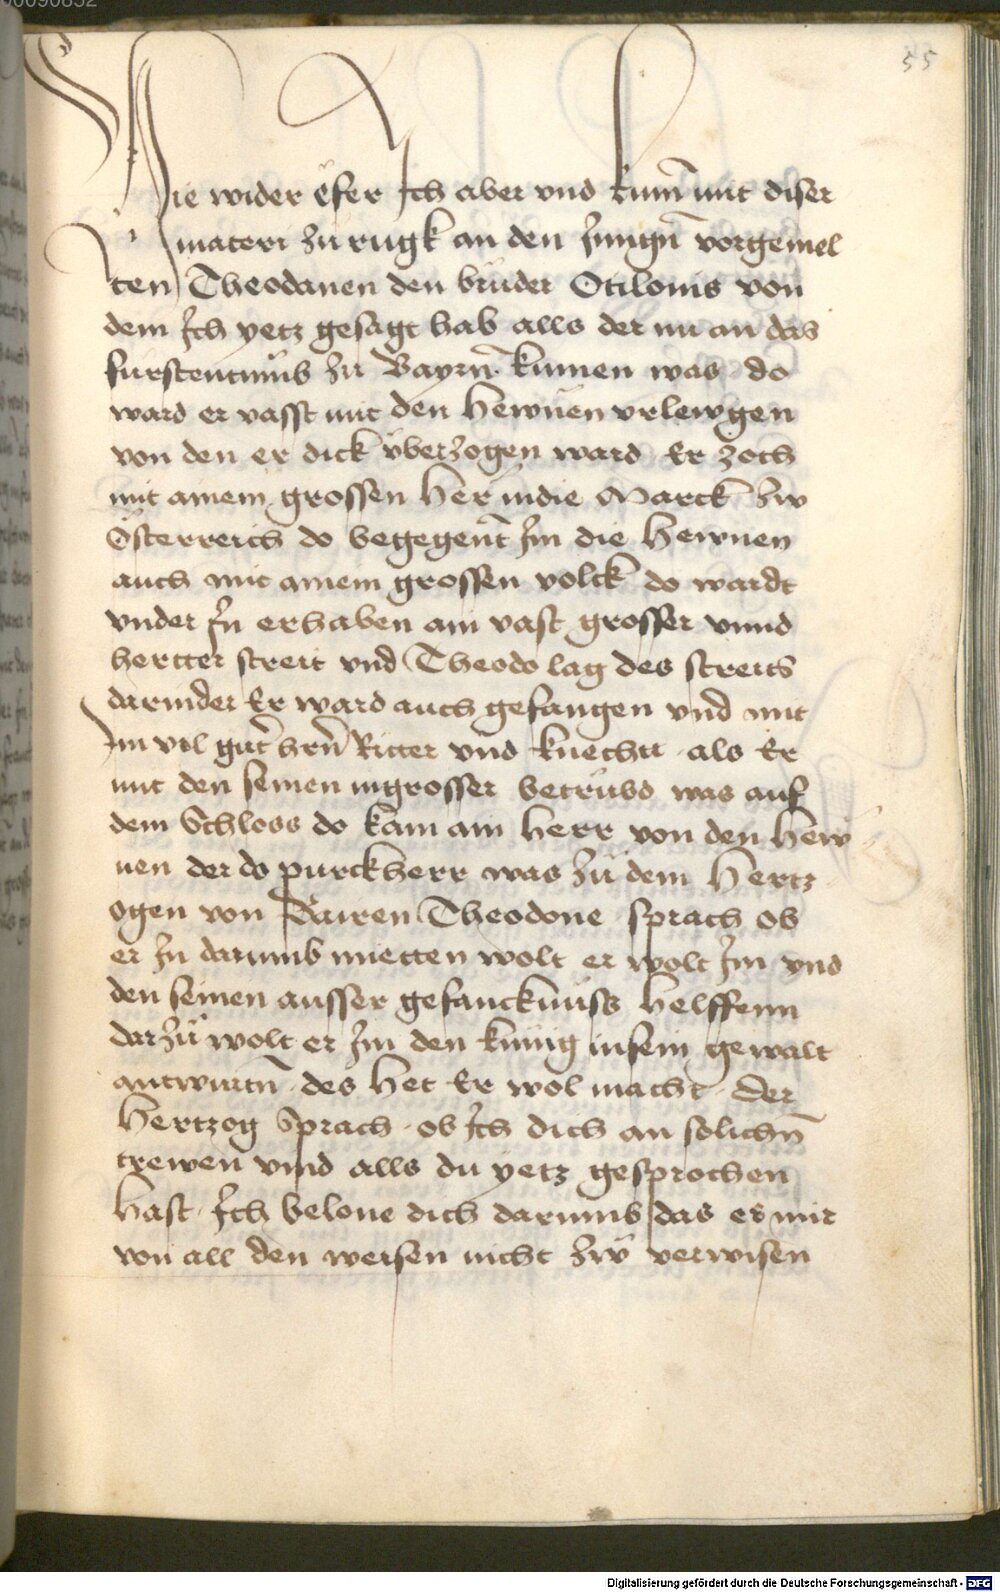 00090852
55
Hie wider efer Ich aber vnd kum̄ mit diser
materi zu rugk an den Jungn̄ vorgemel
ten Theodanen den bruder Otilonis von
dem Ich yetz gesagt hab alls der nu an das
furstentumb zu Bayrn̄ kumen was do
ward er vasst mit den hewnen vrlewgen
von den er dick vberzogen ward Er zoch
mit ainem grossen her in die Marck zw
Österreich do begegent̄ Im die hewnen
auch mit ainem grossen volck do wardt
vnder In erhaben ain vast grosser vnnd
hertter streit vnd Theodo lag des streits
darnider Er ward auch gefangen vnd mit
Im vil gut̄ hrn̄ Ritter vnd knecht als Er
mit den seinen in grosser betrubd was auf
dem Schloss do kam ain herr von den hew
nen der do purckherr was zu dem hertz
ogen von Bairen Theodone sprach ob
er In darumb mietten wolt er wolt Im vnd
den seinen ausser gefancknuss helffenn
darzu wolt er Im den kunig in sein gewalt
antwurtn̄ des het Er wol macht der
hertzog Sprach ob Ich dich an solichn̄
trewen vind alls du yetz gesprochen
hast Ich belone dich darumb das es mir
von all den weisen nicht zw verwisen
Digitalisierung gefördert durch die Deutsche Forschungsgemeinschaft - DFG